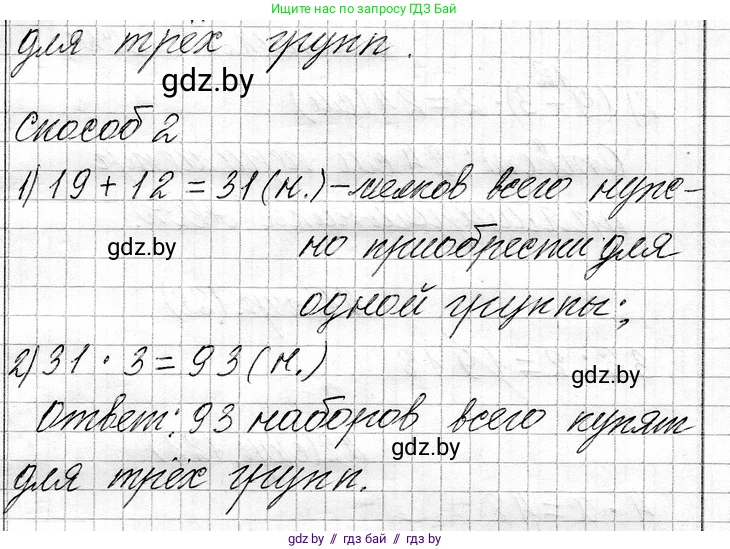 Ищите нас по запросу ГДЗ Бай
для трёх групп.
gdz.by
способ 2
1) 19 + 12 = 31 (н.) - мелков всего нуж-
gdz.by
но приобрести для
одной группы;
2) 31 · 3 = 93 (н.)
gdz.by
Ответ: 93 наборов всего купят
gdz.by
для трёх групп.
gdz.by // гдз.бай // gdz.by